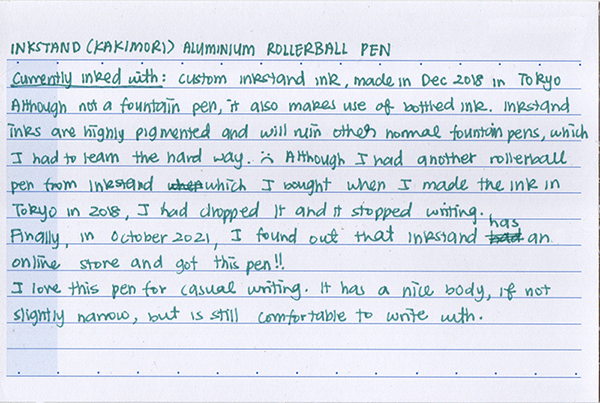 INKSTAND (KAKIMORI) ALUMINIUM ROLLERBALL PEN
Currently inked with: custom inkstand ink, made in Dec 2018 in Tokyo
Although not a fountain pen, it also makes use of bottled ink. Inkstand
inks are highly pigmented and will ruin other normal fountain pens, which
I had to learn the hard way. :( Although I had another rollerball
pen from inkstand which I bought when I made the ink in
Tokyo in 2018, I had dropped it and it stopped writing.
Finally, in October 2021, I found out that inkstand has an
online store and got this pen!!
I love this pen for casual writing. It has a nice body, if not
slightly narrow, but is still comfortable to write with.